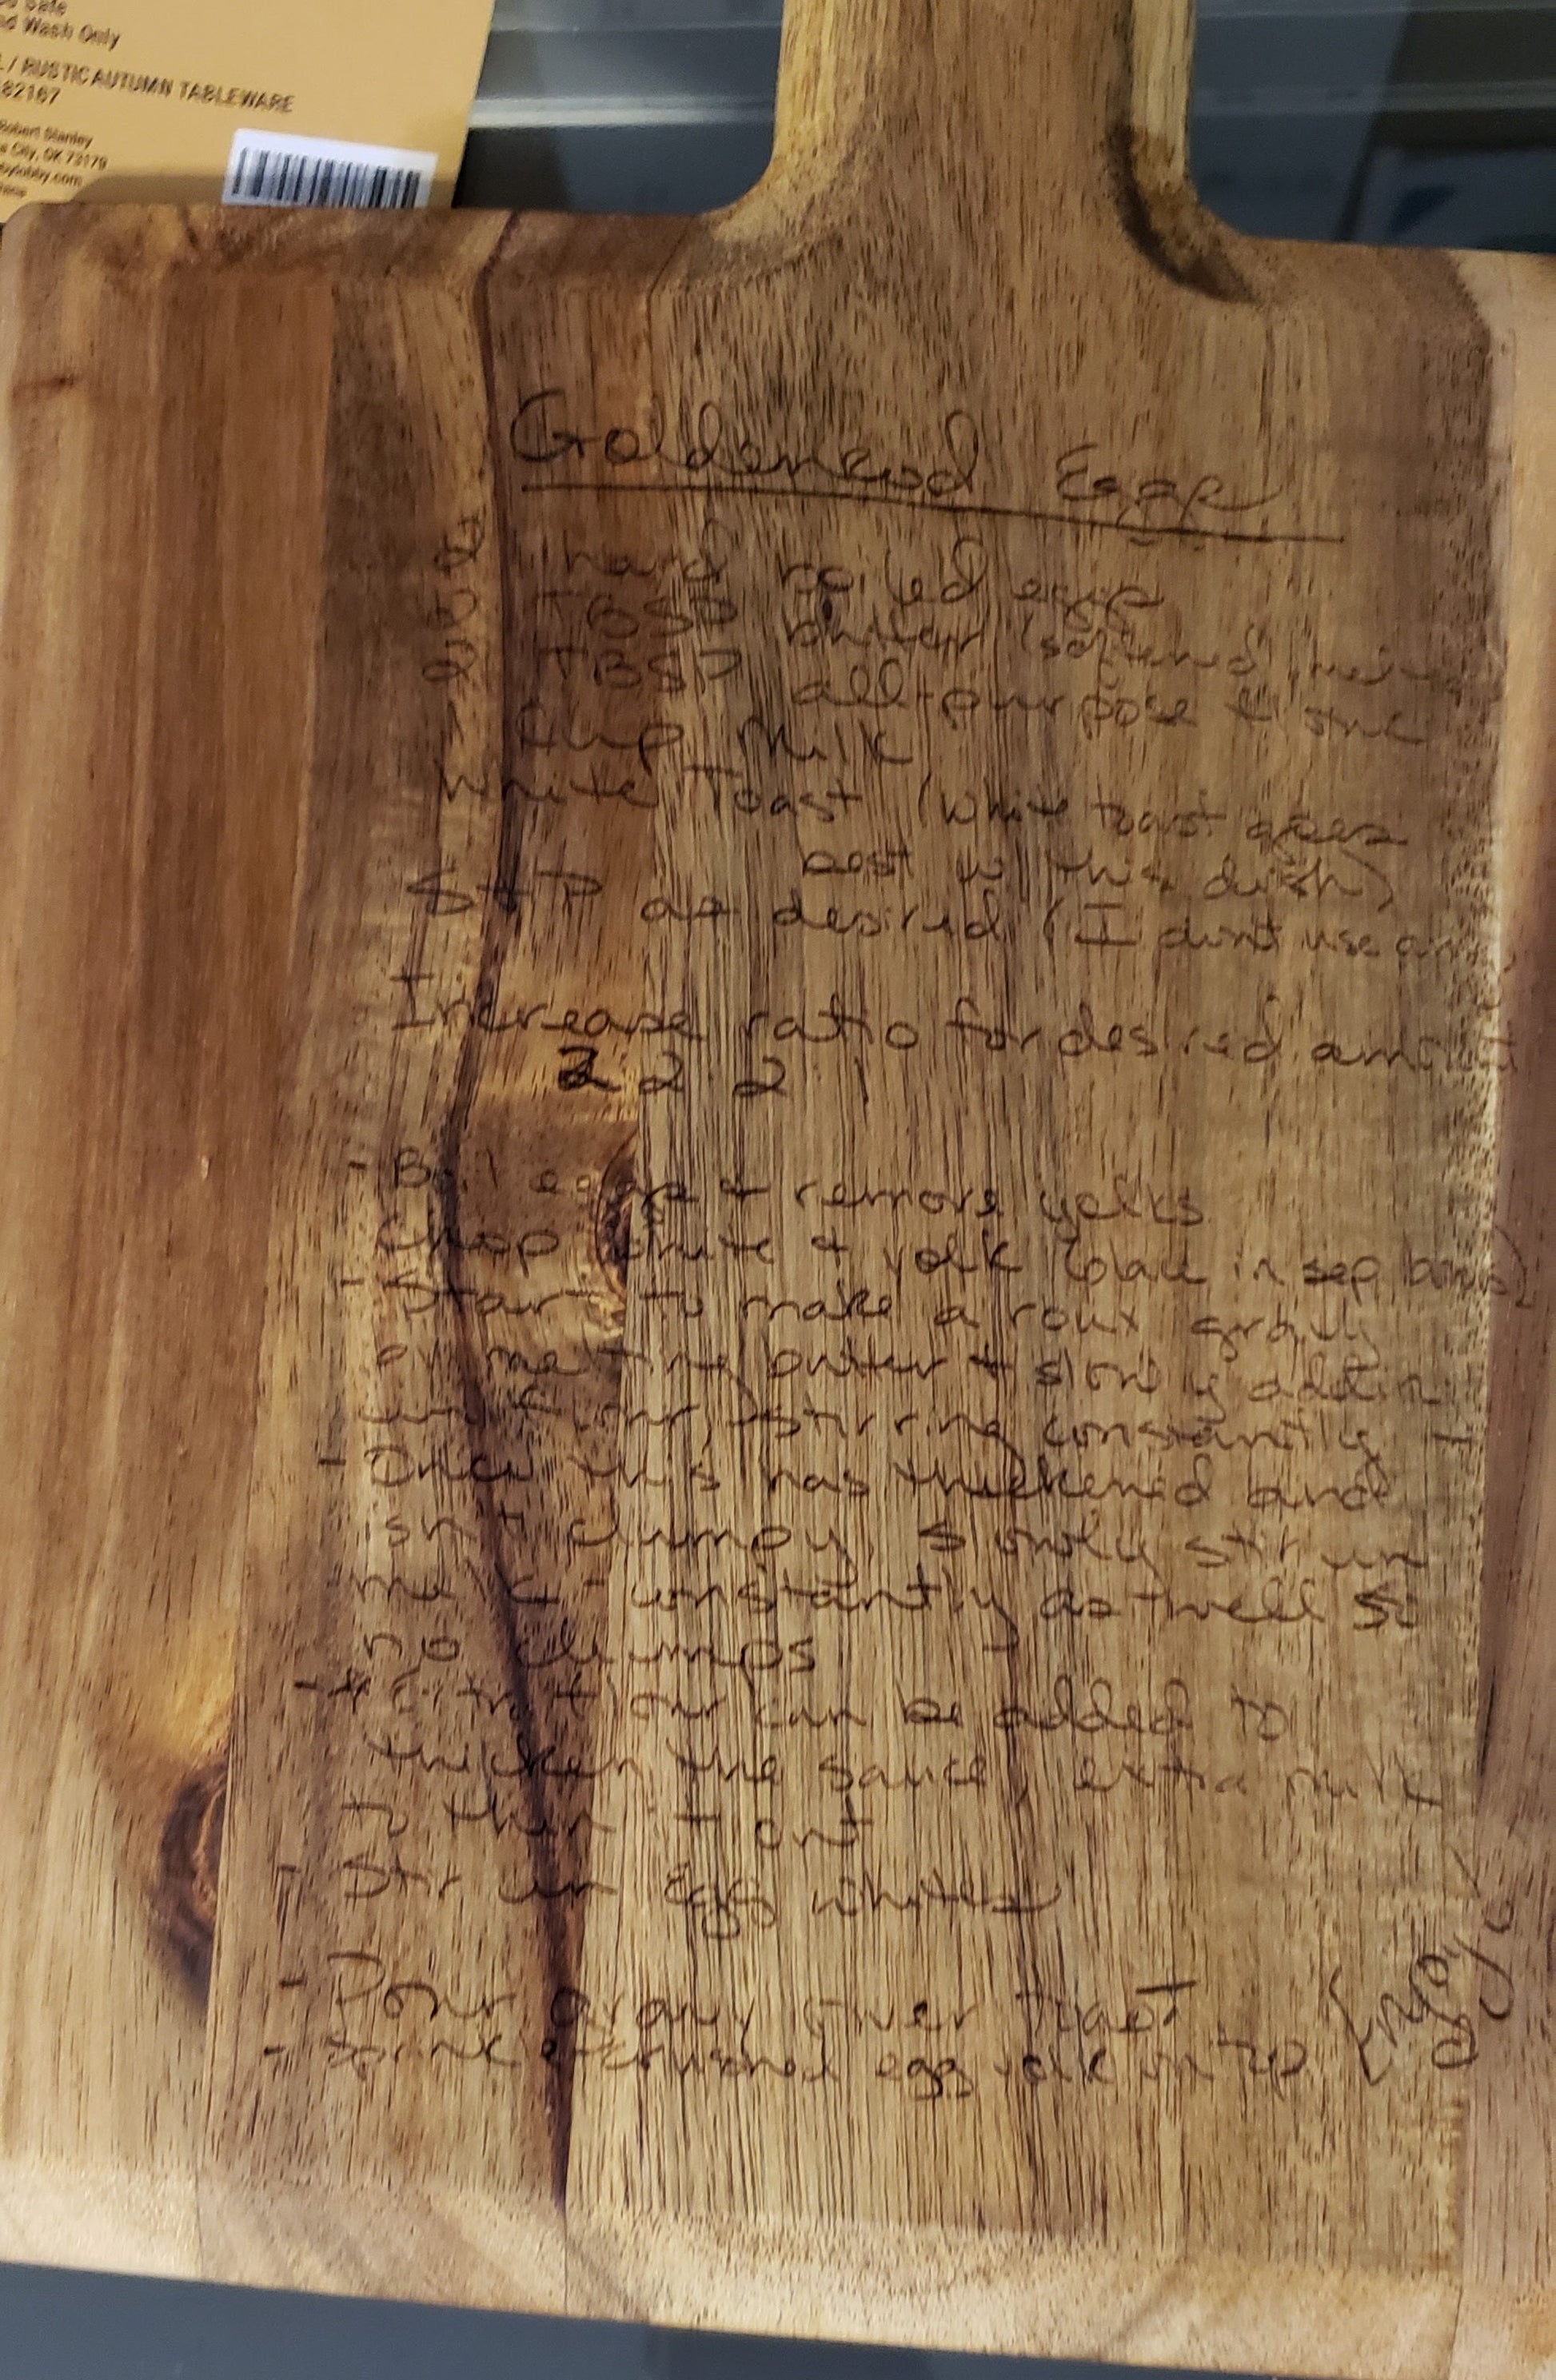 Safe
Wash Only
/ RUSTIC AUTUMN TABLEWARE
82167
Robert Stanley
City, OK 73179
Goldenrod Eggs
2 hard boiled eggs
2 TBSP butter (softened
2 TBSP all-purpose
1 Cup Milk
White Toast (white toast goes
best w/ this dish)
S + P as desired (I don't use any)
Increase ratio for desired amount
2 2 2 1
- Boil eggs + remove yolks
Chop white + yolk (place in sep bowls)
- Start to make a roux gravy
by melting butter + slowly adding
in flour, stirring constantly
- Once this has thickened and
isn't clumpy, slowly stir in
milk - constantly as well so
no clumps
- Extra flour can be added to
thicken the sauce, extra milk
to thin it out
- Stir in egg whites
- Pour gravy over toast
- Sprinkle crushed egg yolk on top
Enjoy